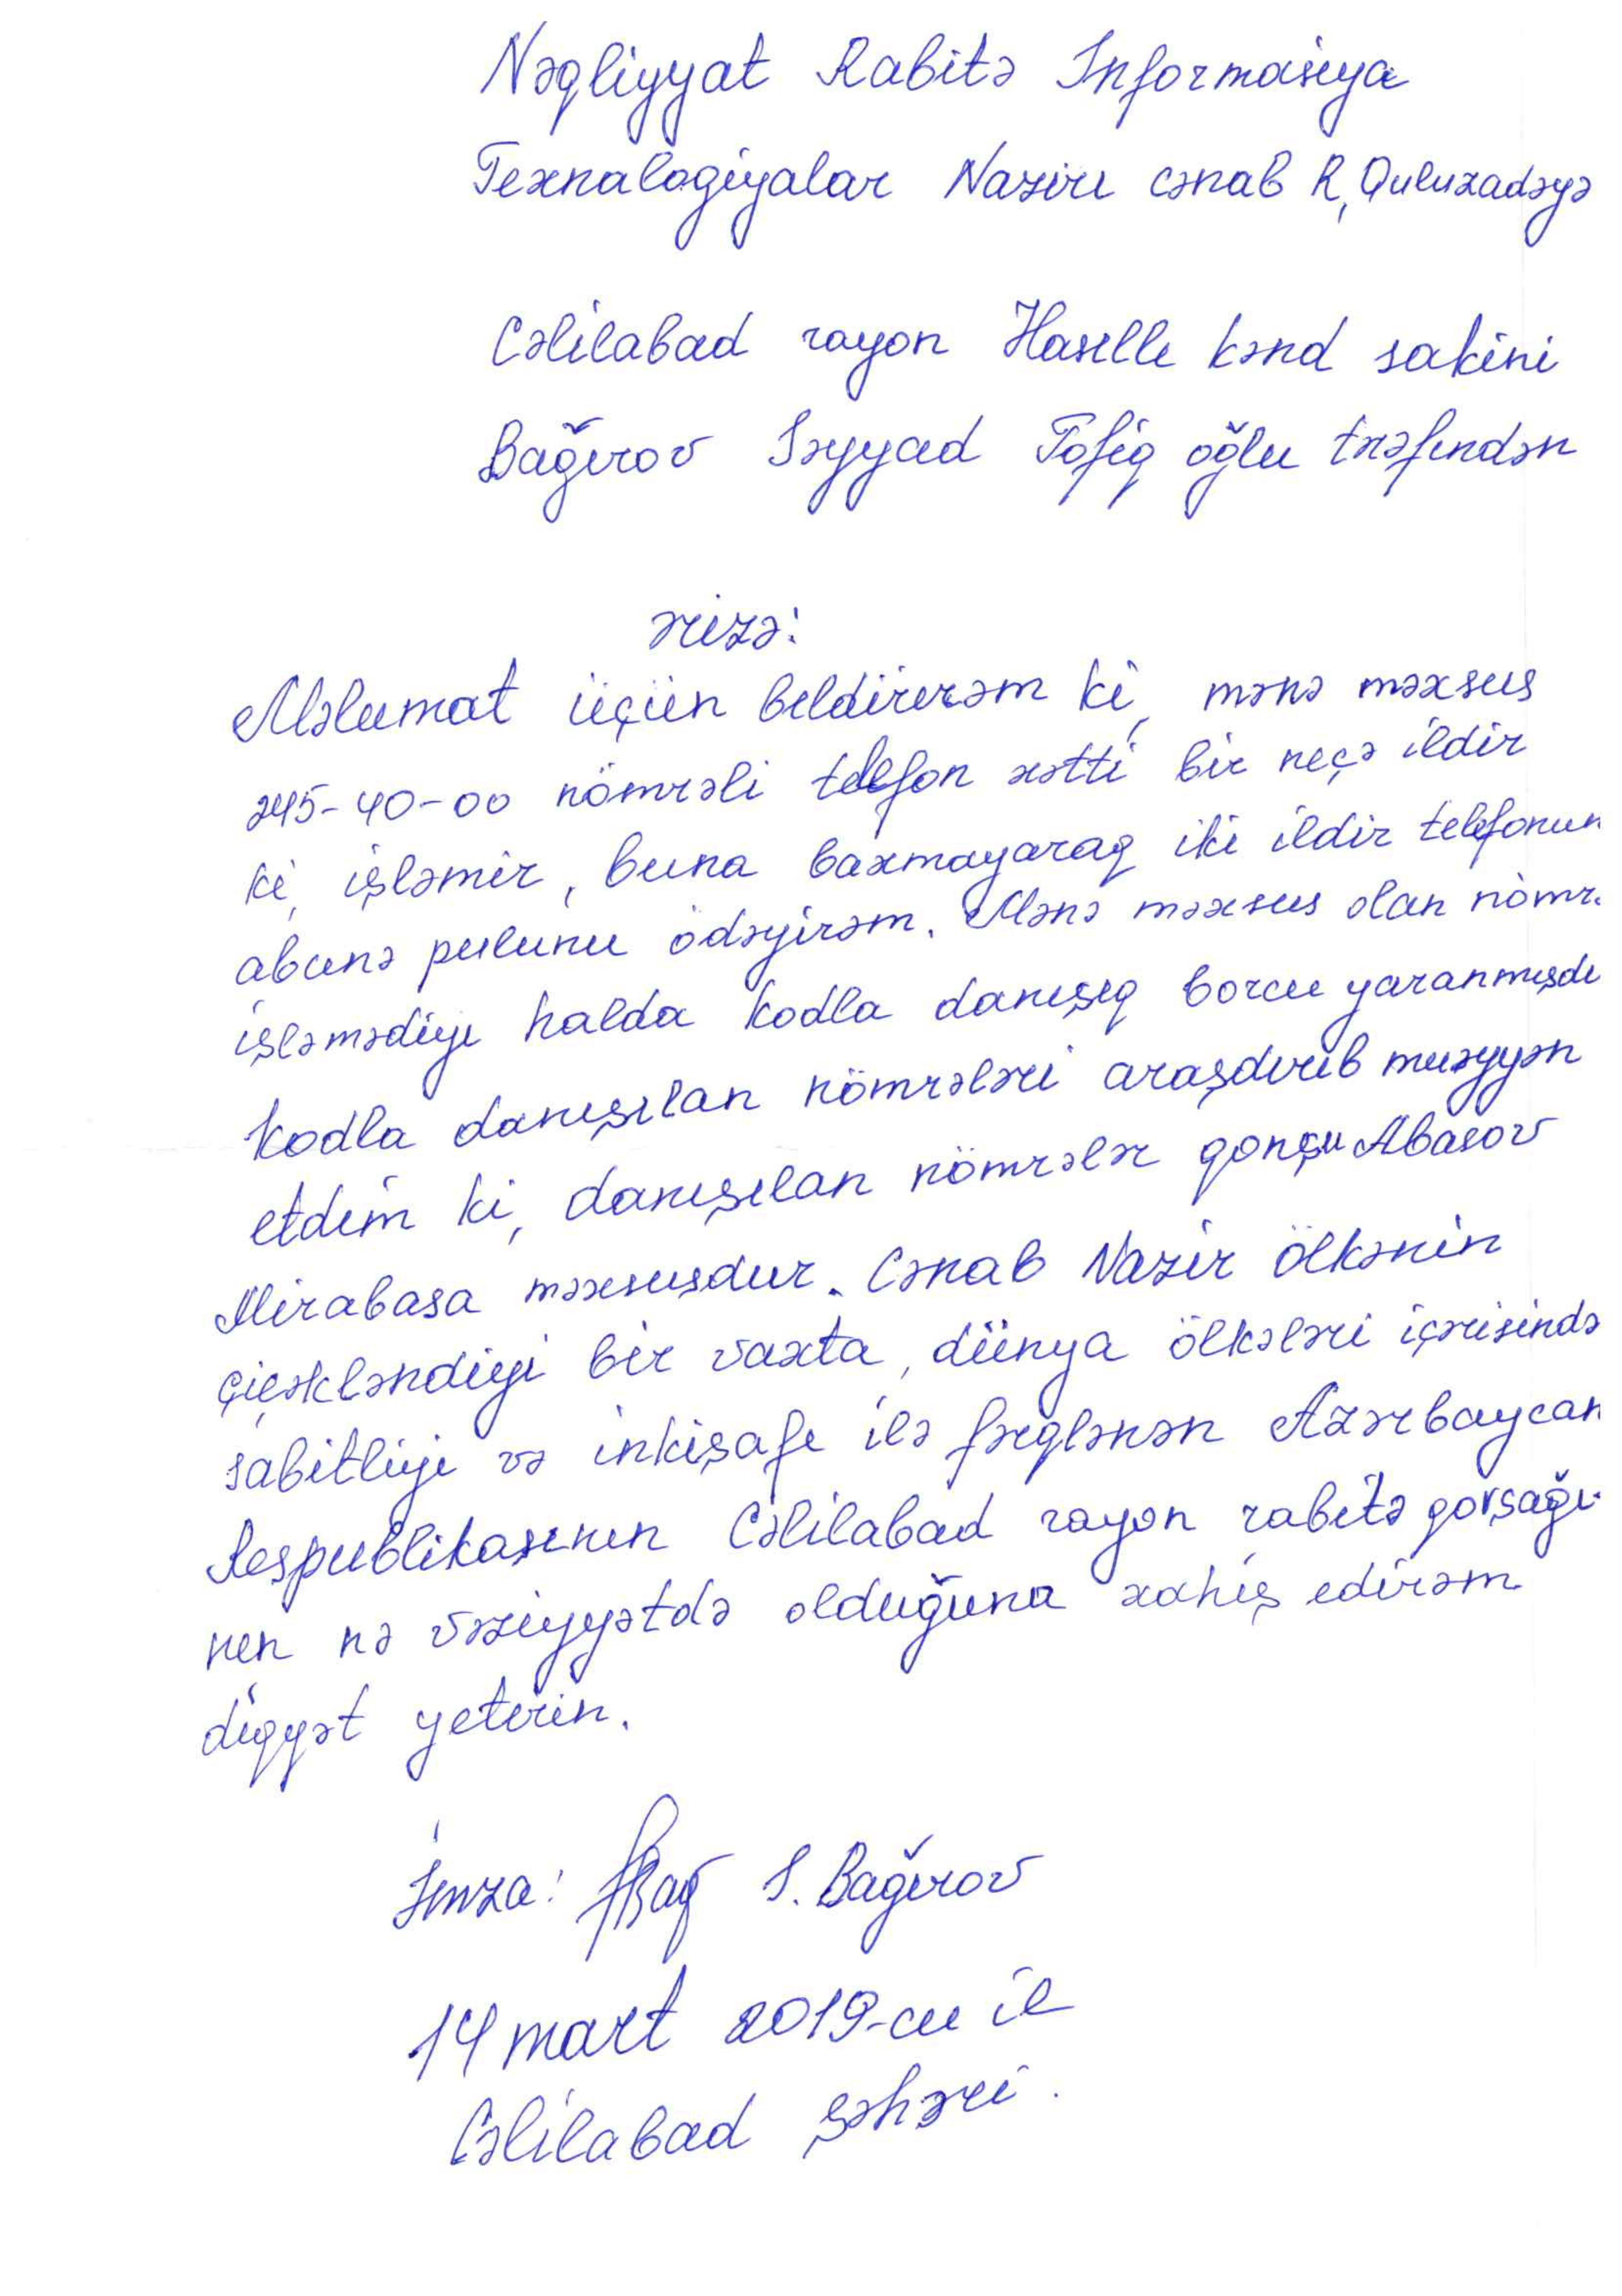 Nəqliyyat Rabitə İnformasiya
Texnalogiyalar Naziri cənab R, Quluzadəyə
Cəlilabad rayon Hasıllı kənd sakini
Bağırov Səyyad Tofiq oğlu trəfindən
ərizə:
Məlumat üçün bildirirəm ki, mənə məxsus
245-40-00 nömrəli telefon xətti bir neçə ildir
ki, işləmir, buna baxmayaraq iki ildir telefonun
abunə pulunu ödəyirəm. Mənə məxsus olan nömr.
işləmədiyi halda kodla danışıq borcu yaranmışdı
kodla danışılan nömrələri araşdırıb muəyyən
etdim ki, danışılan nömrələr qonşu Abasov
Mirabasa məxsusdur. Cənab Nazir ölkənin
çiçəkləndiyi bir vaxta, dünya ölkələri içərisində
sabitliyi və inkişafı ilə fərqlənən Azərbaycan
Respublikasının Cəlilabad rayon rabitə qovşağı-
nın nə vəziyyətdə olduğuna xahiş edirəm
diqqət yetirin.
İmza: S. Bağırov
14 mart 2019-cu il
Cəlilabad şəhəri.